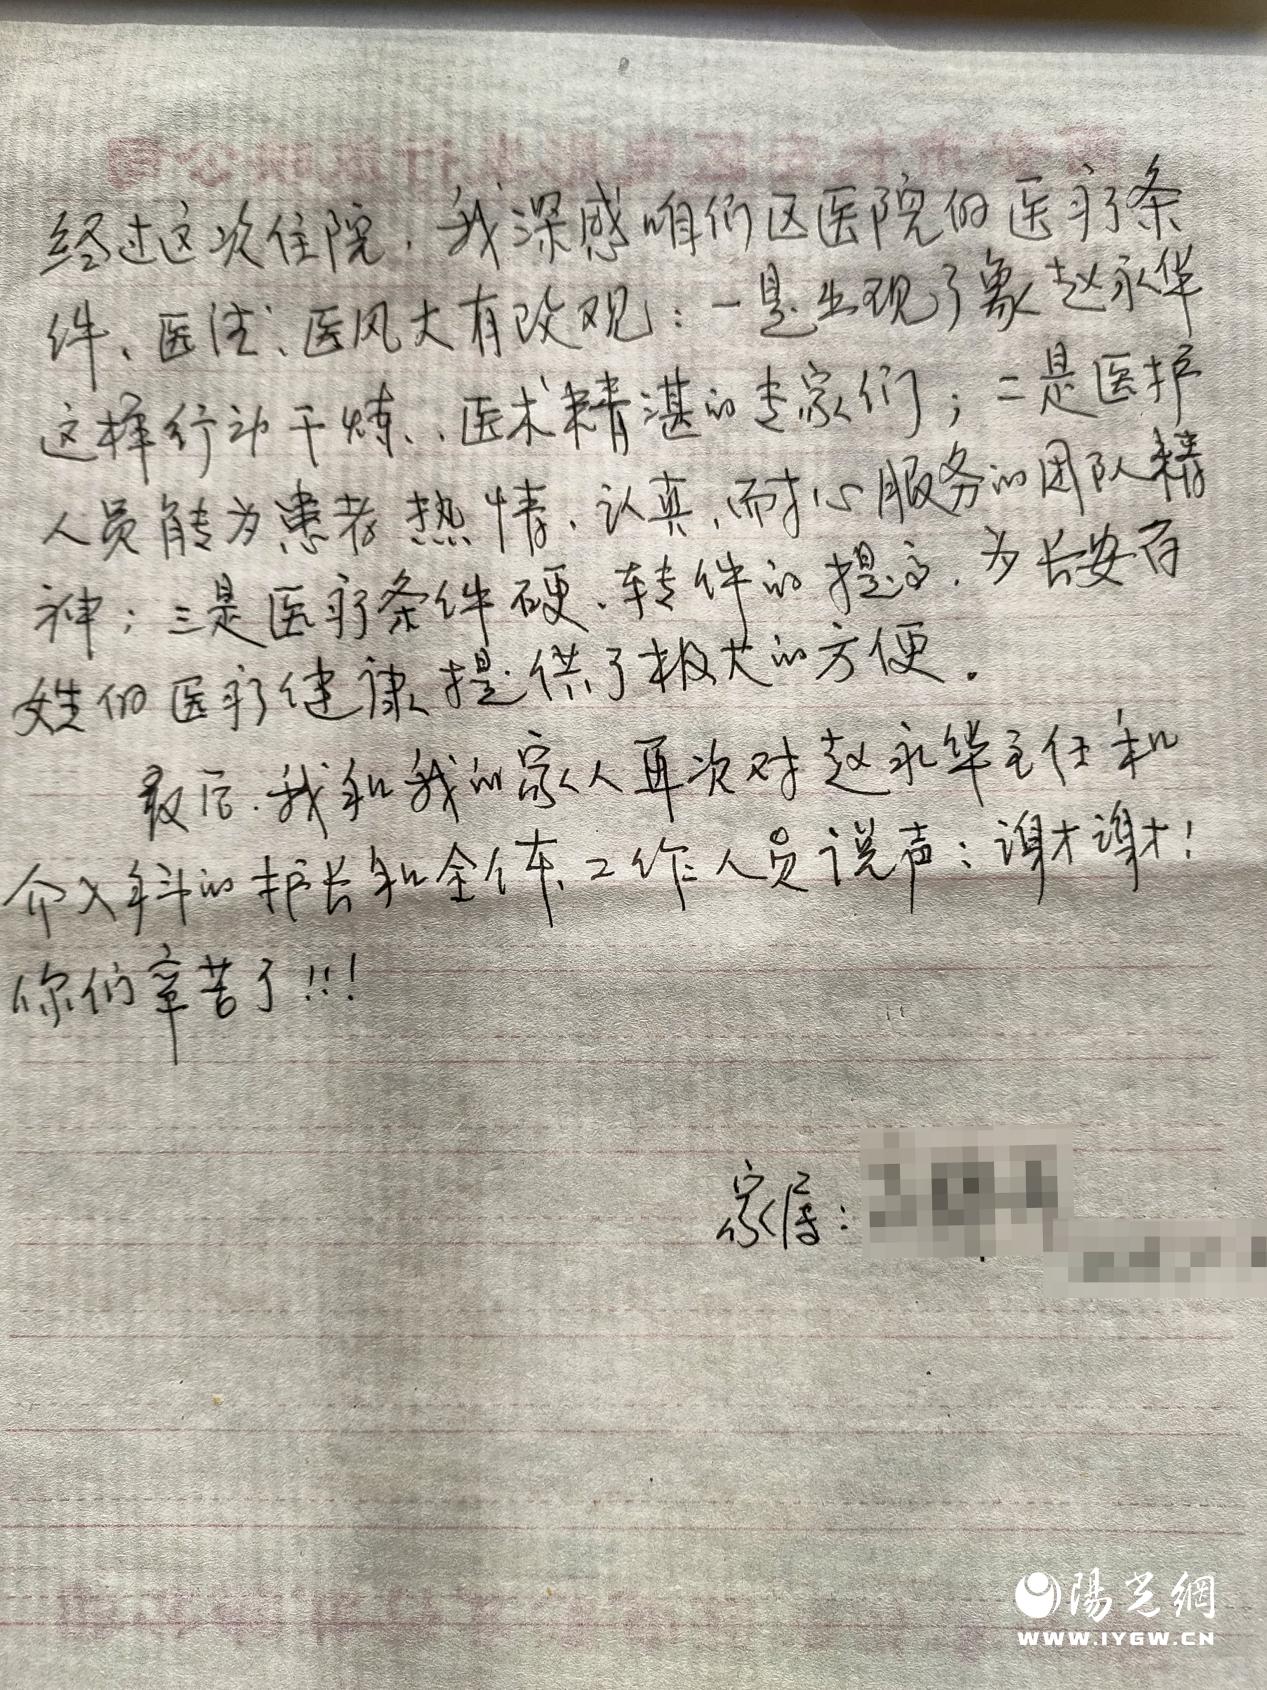 经过这次住院，我深感咱们区医院的医疗条
件、医德、医风大有改观：一是出现了象赵永华
这样行动干炼、医术精湛的专家们；二是医护
人员能为患者热情、认真、耐心服务的团队精
神；三是医疗条件硬、转件的提高，为长安百
姓的医疗健康提供了极大的方便。
最后，我和我的家人再次对赵永华主任和
介入科的护长和全体、工作人员说声：谢谢！
你们辛苦了!!!
家属：
陽光網
WWW.IYGW.CN